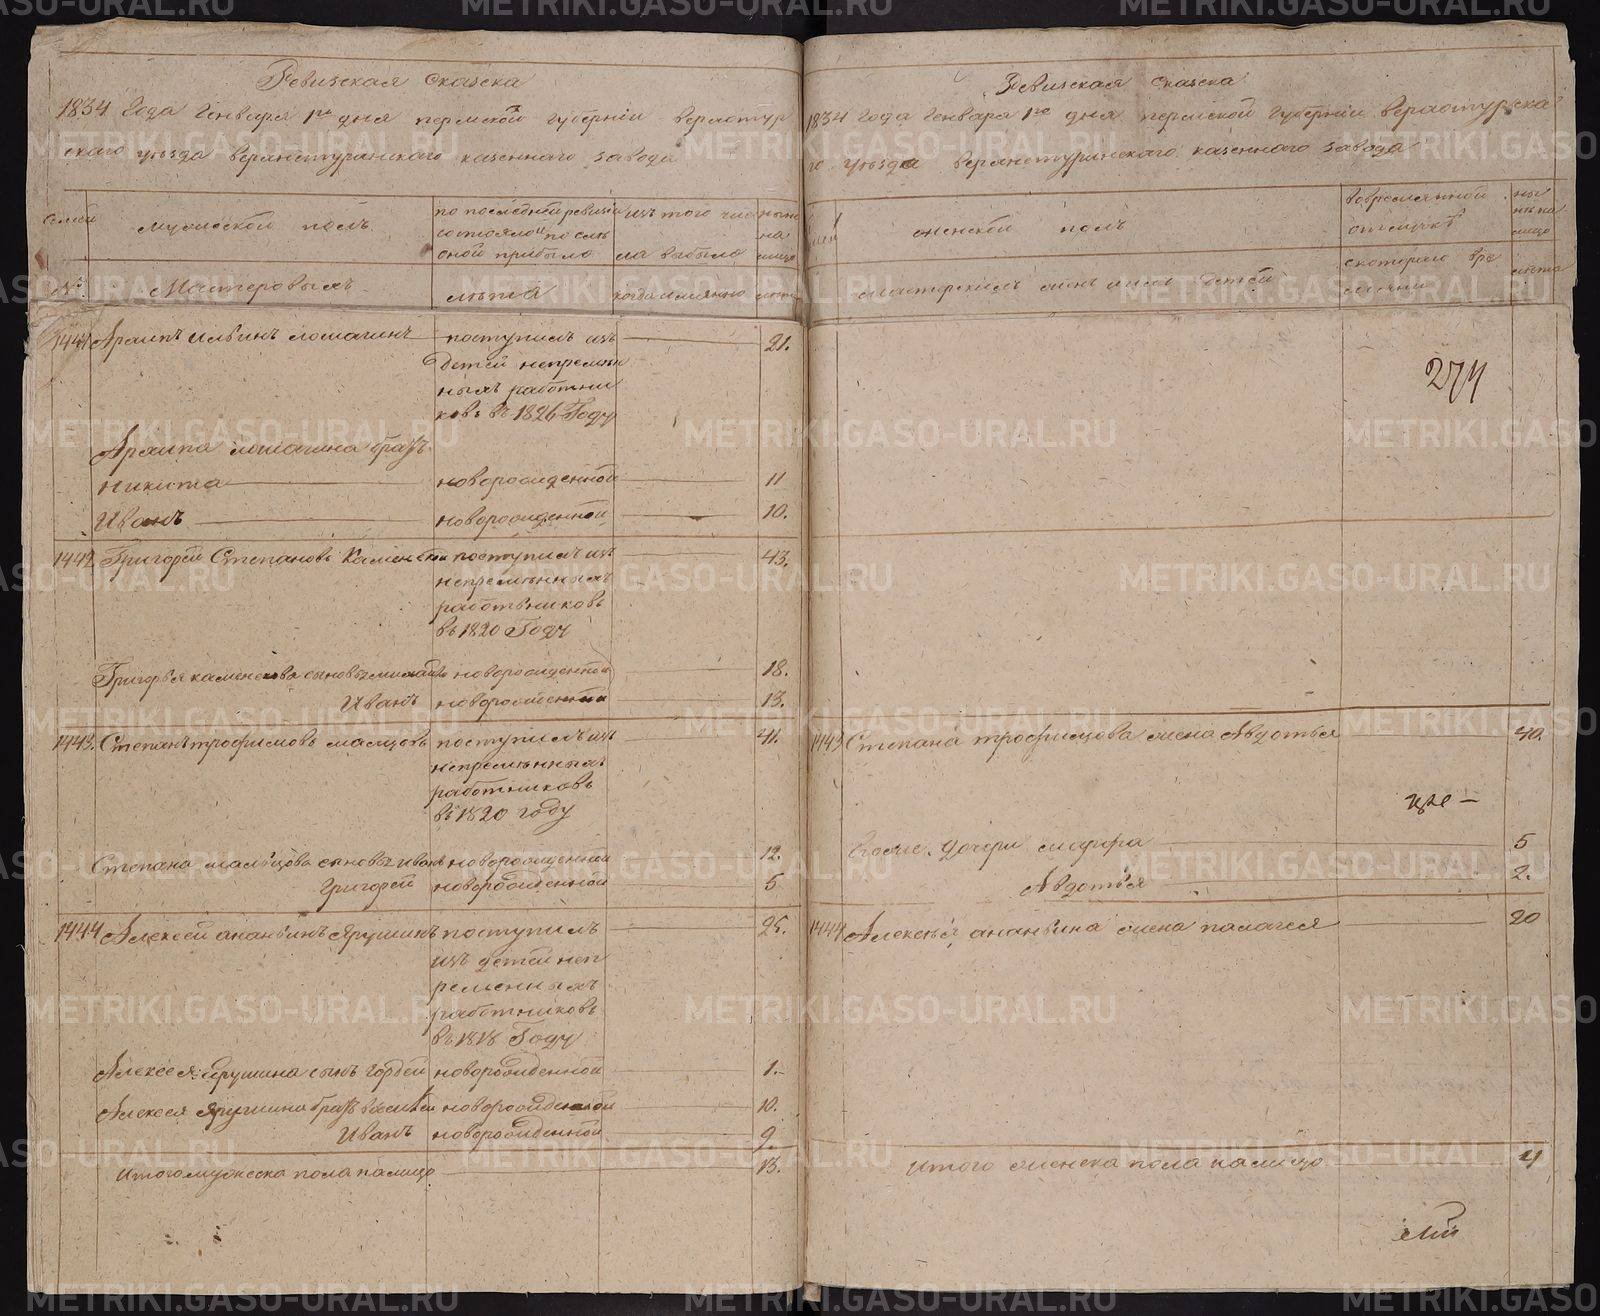 Ревизская Сказка
1834 Года Генваря 1го дня пермской губернии верхотур
скаго уезда верхнетуринского казенного завода
Семьи
мужеской полъ
по последней ревизии
состояло и после
оной прибыло
изъ того чис
ла выбыло
ныне
на
лицо
№
Мастеровыхъ
лѣта
когда имянно
лета
1441 Архипъ ильинъ ломагинъ поступилъ изъ 21.
Детей непремен
ныхъ работни
ковъ въ 1826 Году
Архипа ломагина братъ
никита новорожденной 11
Иванъ новорожденной 10.
1442 Григорей Степановъ Каменскои поступилъ изъ 43.
непременныхъ
работниковъ
въ 1820 Году
Григорья каменскова сыновья новорожденной 18.
Иванъ новорожденной 13.
1443. Степанъ трофимовъ малцовъ поступилъ изъ 41.
непременныхъ
работниковъ
въ 1820 году
Степана малцова сыновья иванъ новорожденной 12.
Григорей новорожденной 5
1444 Алексей ананьинъ Ярушинъ поступилъ 25.
изъ детей неп
ременныхъ
работниковъ
въ 1818 Году
Алексея Ярушина сынъ Гордей новорожденной 1.
Алексея Ярушина братъ василей новорожденной 10.
Иванъ новорожденной 9.
Итого мужеска пола налицо 13.
Ревизская Сказка
1834 Года Генваря 1го дня пермской Губернии Верхотурска
го уезда верхнетуринского казенного завода
женской полъ
вовременной
отлучке
ны
не на
лицо
мастерскихъ жонъ и ихъ детей
скоторого вре
мени
лета
274
1443 Степана трофимова жена Авдотья 40.
Ево же Дочери 5
Авдотья 2.
1444 Алексея ананьина жена палагея 20
итого женска пола налицо 4